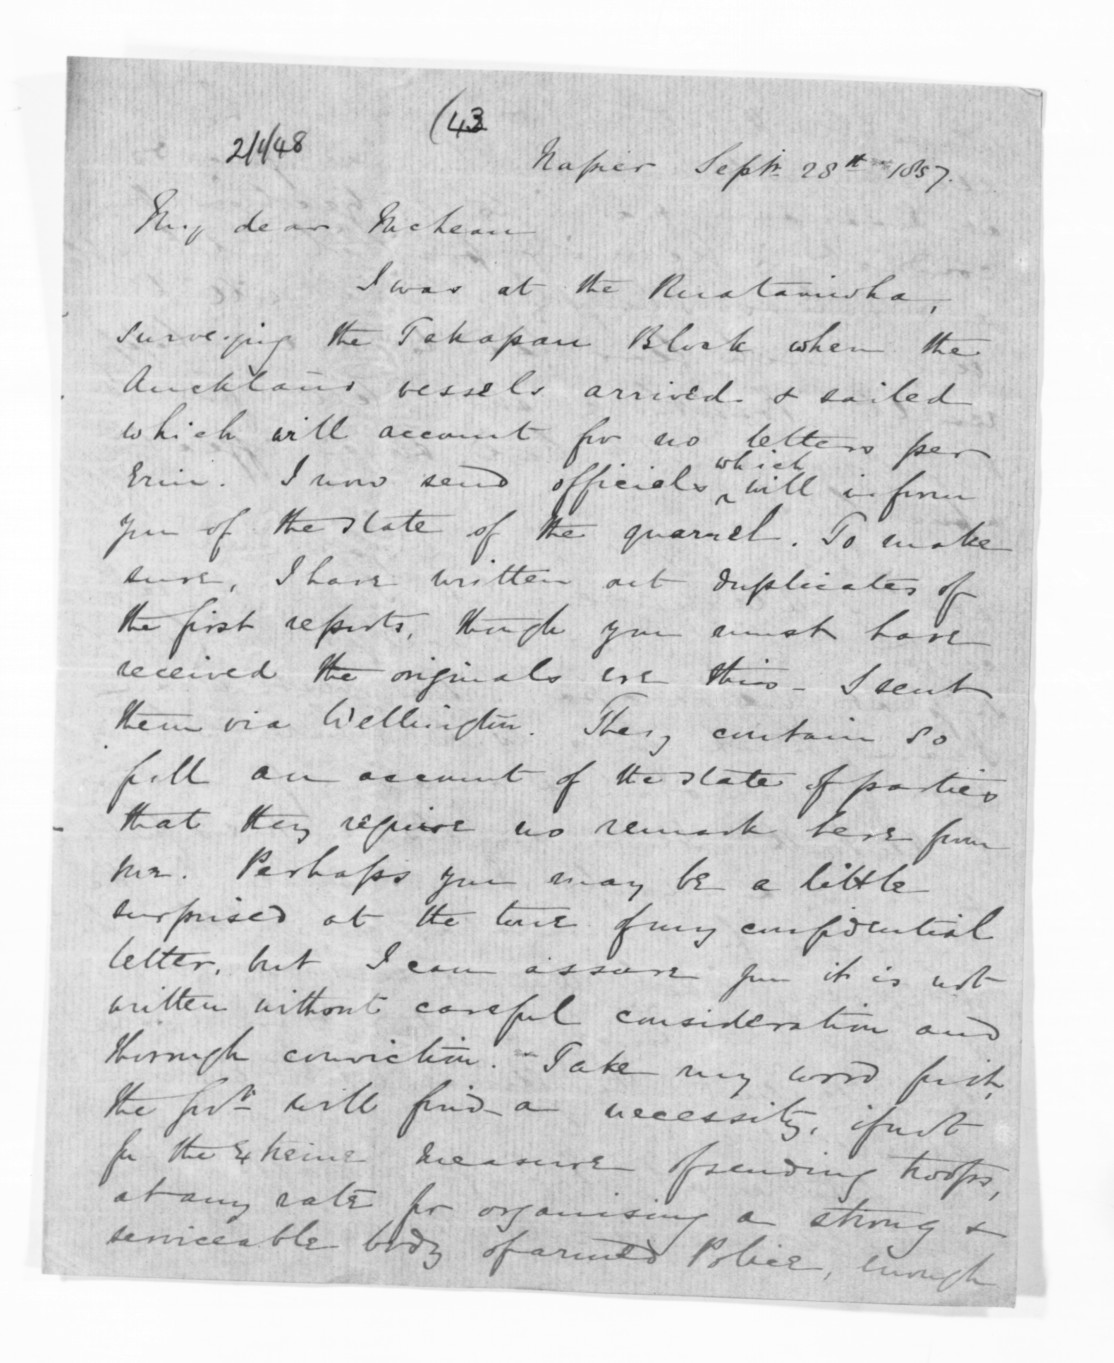 (43
2/1/48
Napier Septr. 28th 1857.
My dear McLean
I was at the Ruataniwha,
surveying the Takapau Block when the
Auckland vessels arrived & sailed
which will account for no letters per
Erin. I now send officials which will inform
you of the state of the quarrel. To make
sure, I have written out duplicates of
the first reports, though you must have
received the originals ere this - I sent
them via Wellington. They contain so
full an account of the state of parties
that they require no remark here from
me. Perhaps you may be a little
surprised at the tone of my confidential
letter, but I can assure you it is not
written without careful consideration and
thorough conviction. Take my word for it,
the Govt. will find a necessity, if not
for the extreme measure of sending troops,
at any rate for organising a strong &
serviceable body of armed Police, enough